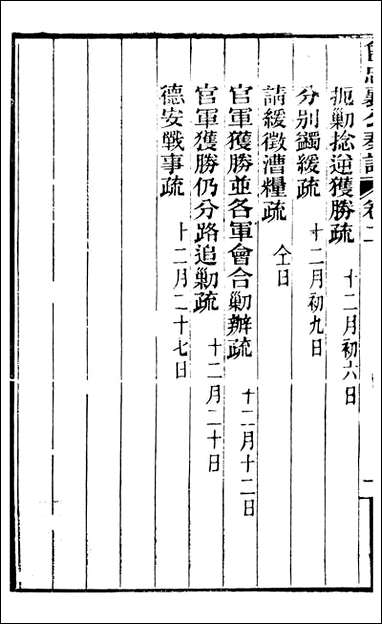 曾忠襄公奏議 卷二
扼勦捻逆獲勝疏 十二月初六日
分別蠲緩疏 十二月初九日
請緩徵漕糧疏 仝日
官軍獲勝並各軍會合勦辦疏 十二月十二日
官軍獲勝仍分路追勦疏 十二月二十日
德安戰事疏 十二月二十七日